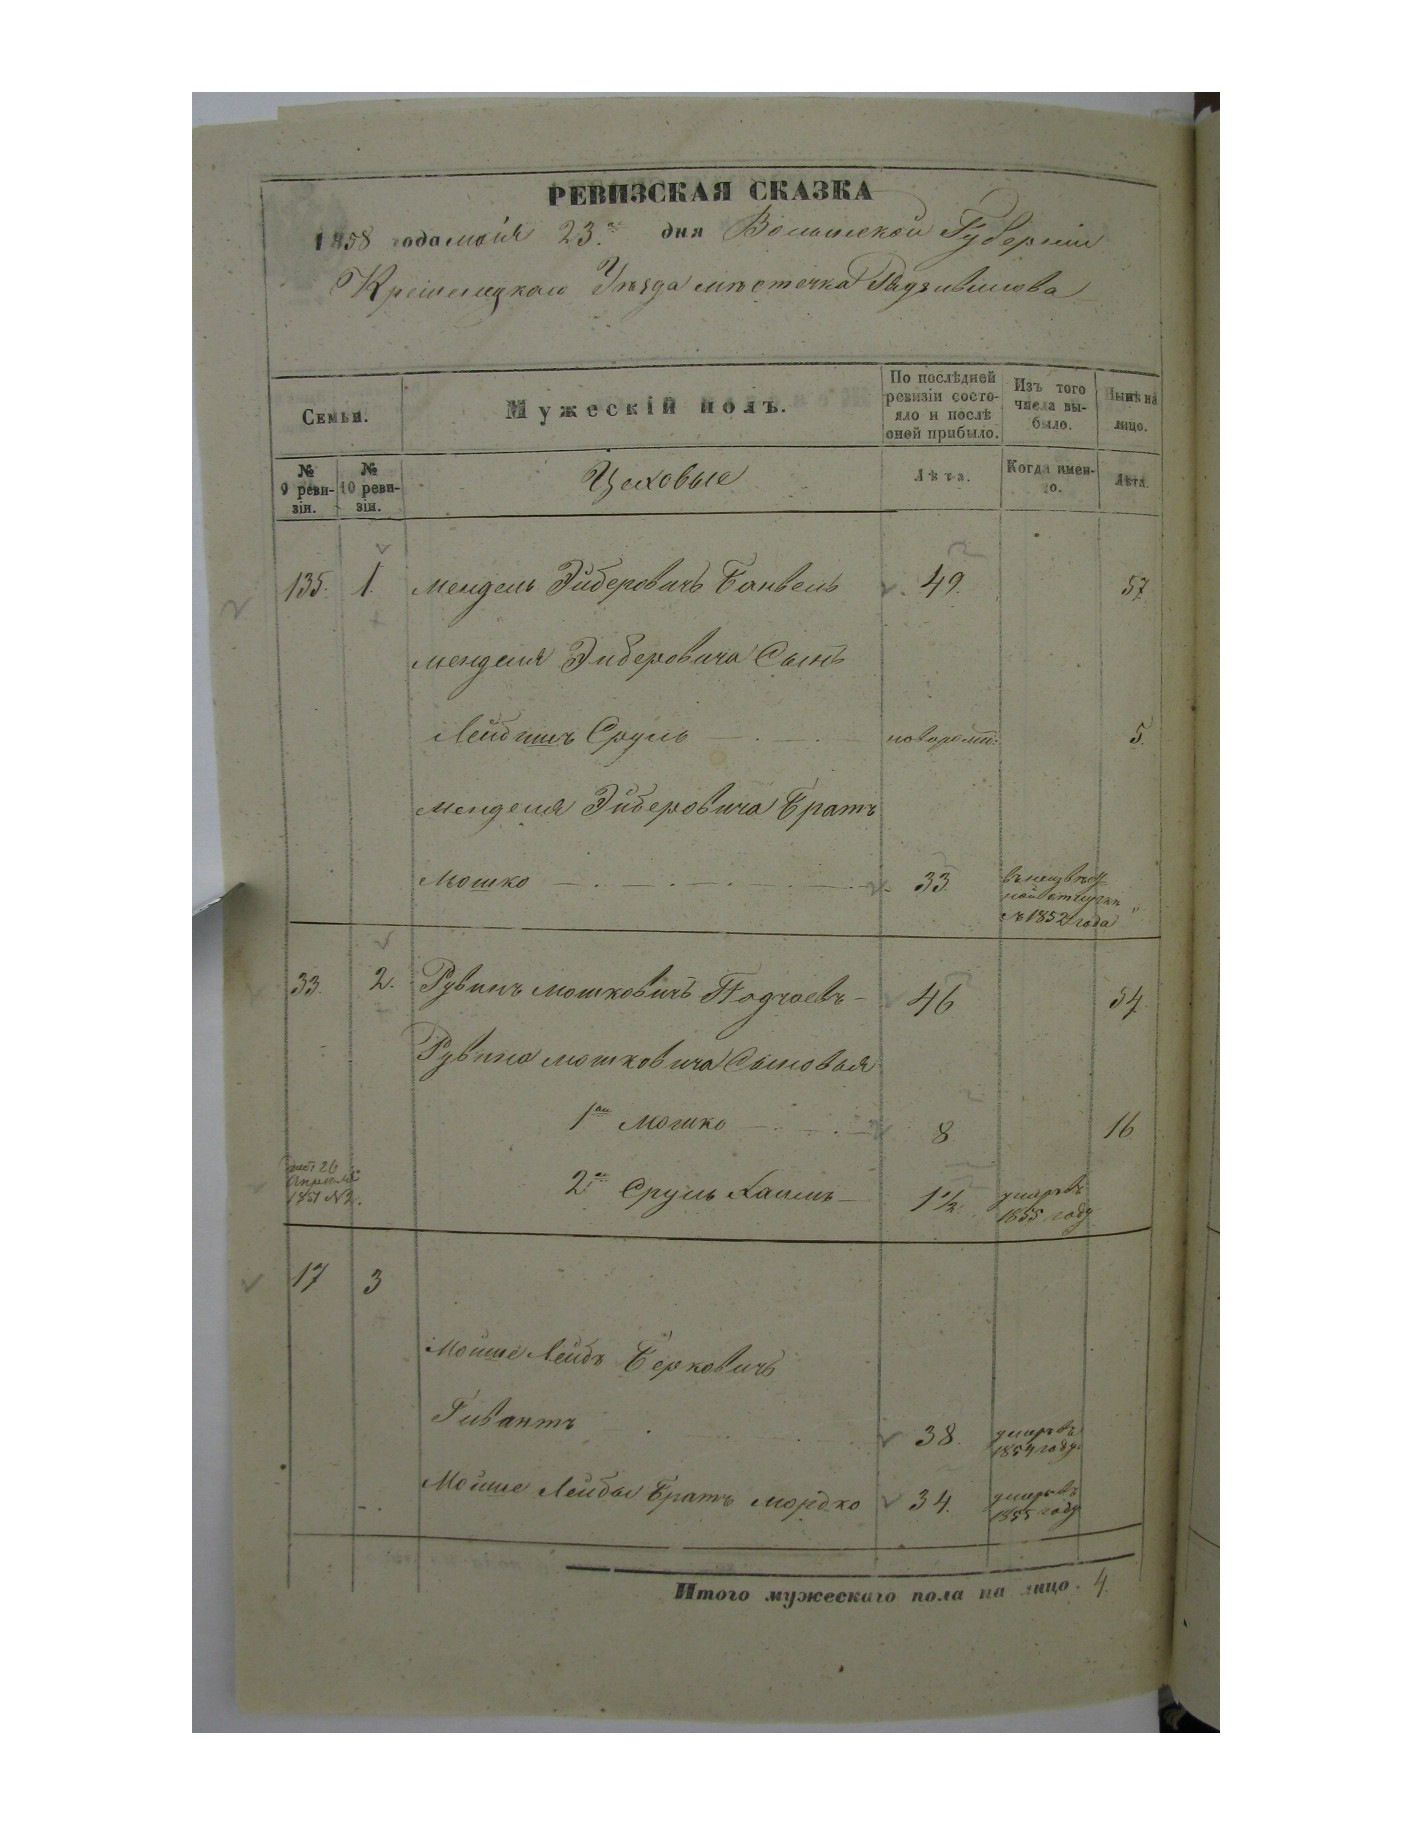 РЕВИЗСКАЯ СКАЗКА
1858 года мая 23го дня Волынской Губерніи
Кременецкаго Уѣзда мѣстечка Радзивилова
Семьи.
Мужескій полъ.
По послѣдней ревизіи состояло и послѣ оной прибыло.
Изъ того числа выбыло.
Нынѣ на лицо.
№ 9 ревизіи.
№ 10 ревизіи.
Цеховые
Лѣта.
Когда именно.
Лѣта.
135. 1. Мендель Эйберовичъ Банвель 49. 57
Менделя Эйберовича Сынъ
Лейбишъ Сруль новорожд: 5.
Менделя Эйберовича Братъ
Мошко 33. въ неизвѣстной отлучкѣ съ 1852 года "
33. 2. Рувинъ Мошковичъ Подчаевъ 46 54.
Рувина Мошковича Сыновья
1ый Мошко 8 16
26 Апреля 1851 №2. 2й Сруль Хаимъ 1 1/2 умеръ въ 1855 году
17 3
Мойше Лейбъ Берковичъ
Гивантъ 38. умеръ въ 1854 году.
Мойше Лейбы Братъ Мордко 34. умеръ въ 1855 году
Итого мужескаго пола на лицо. 4.